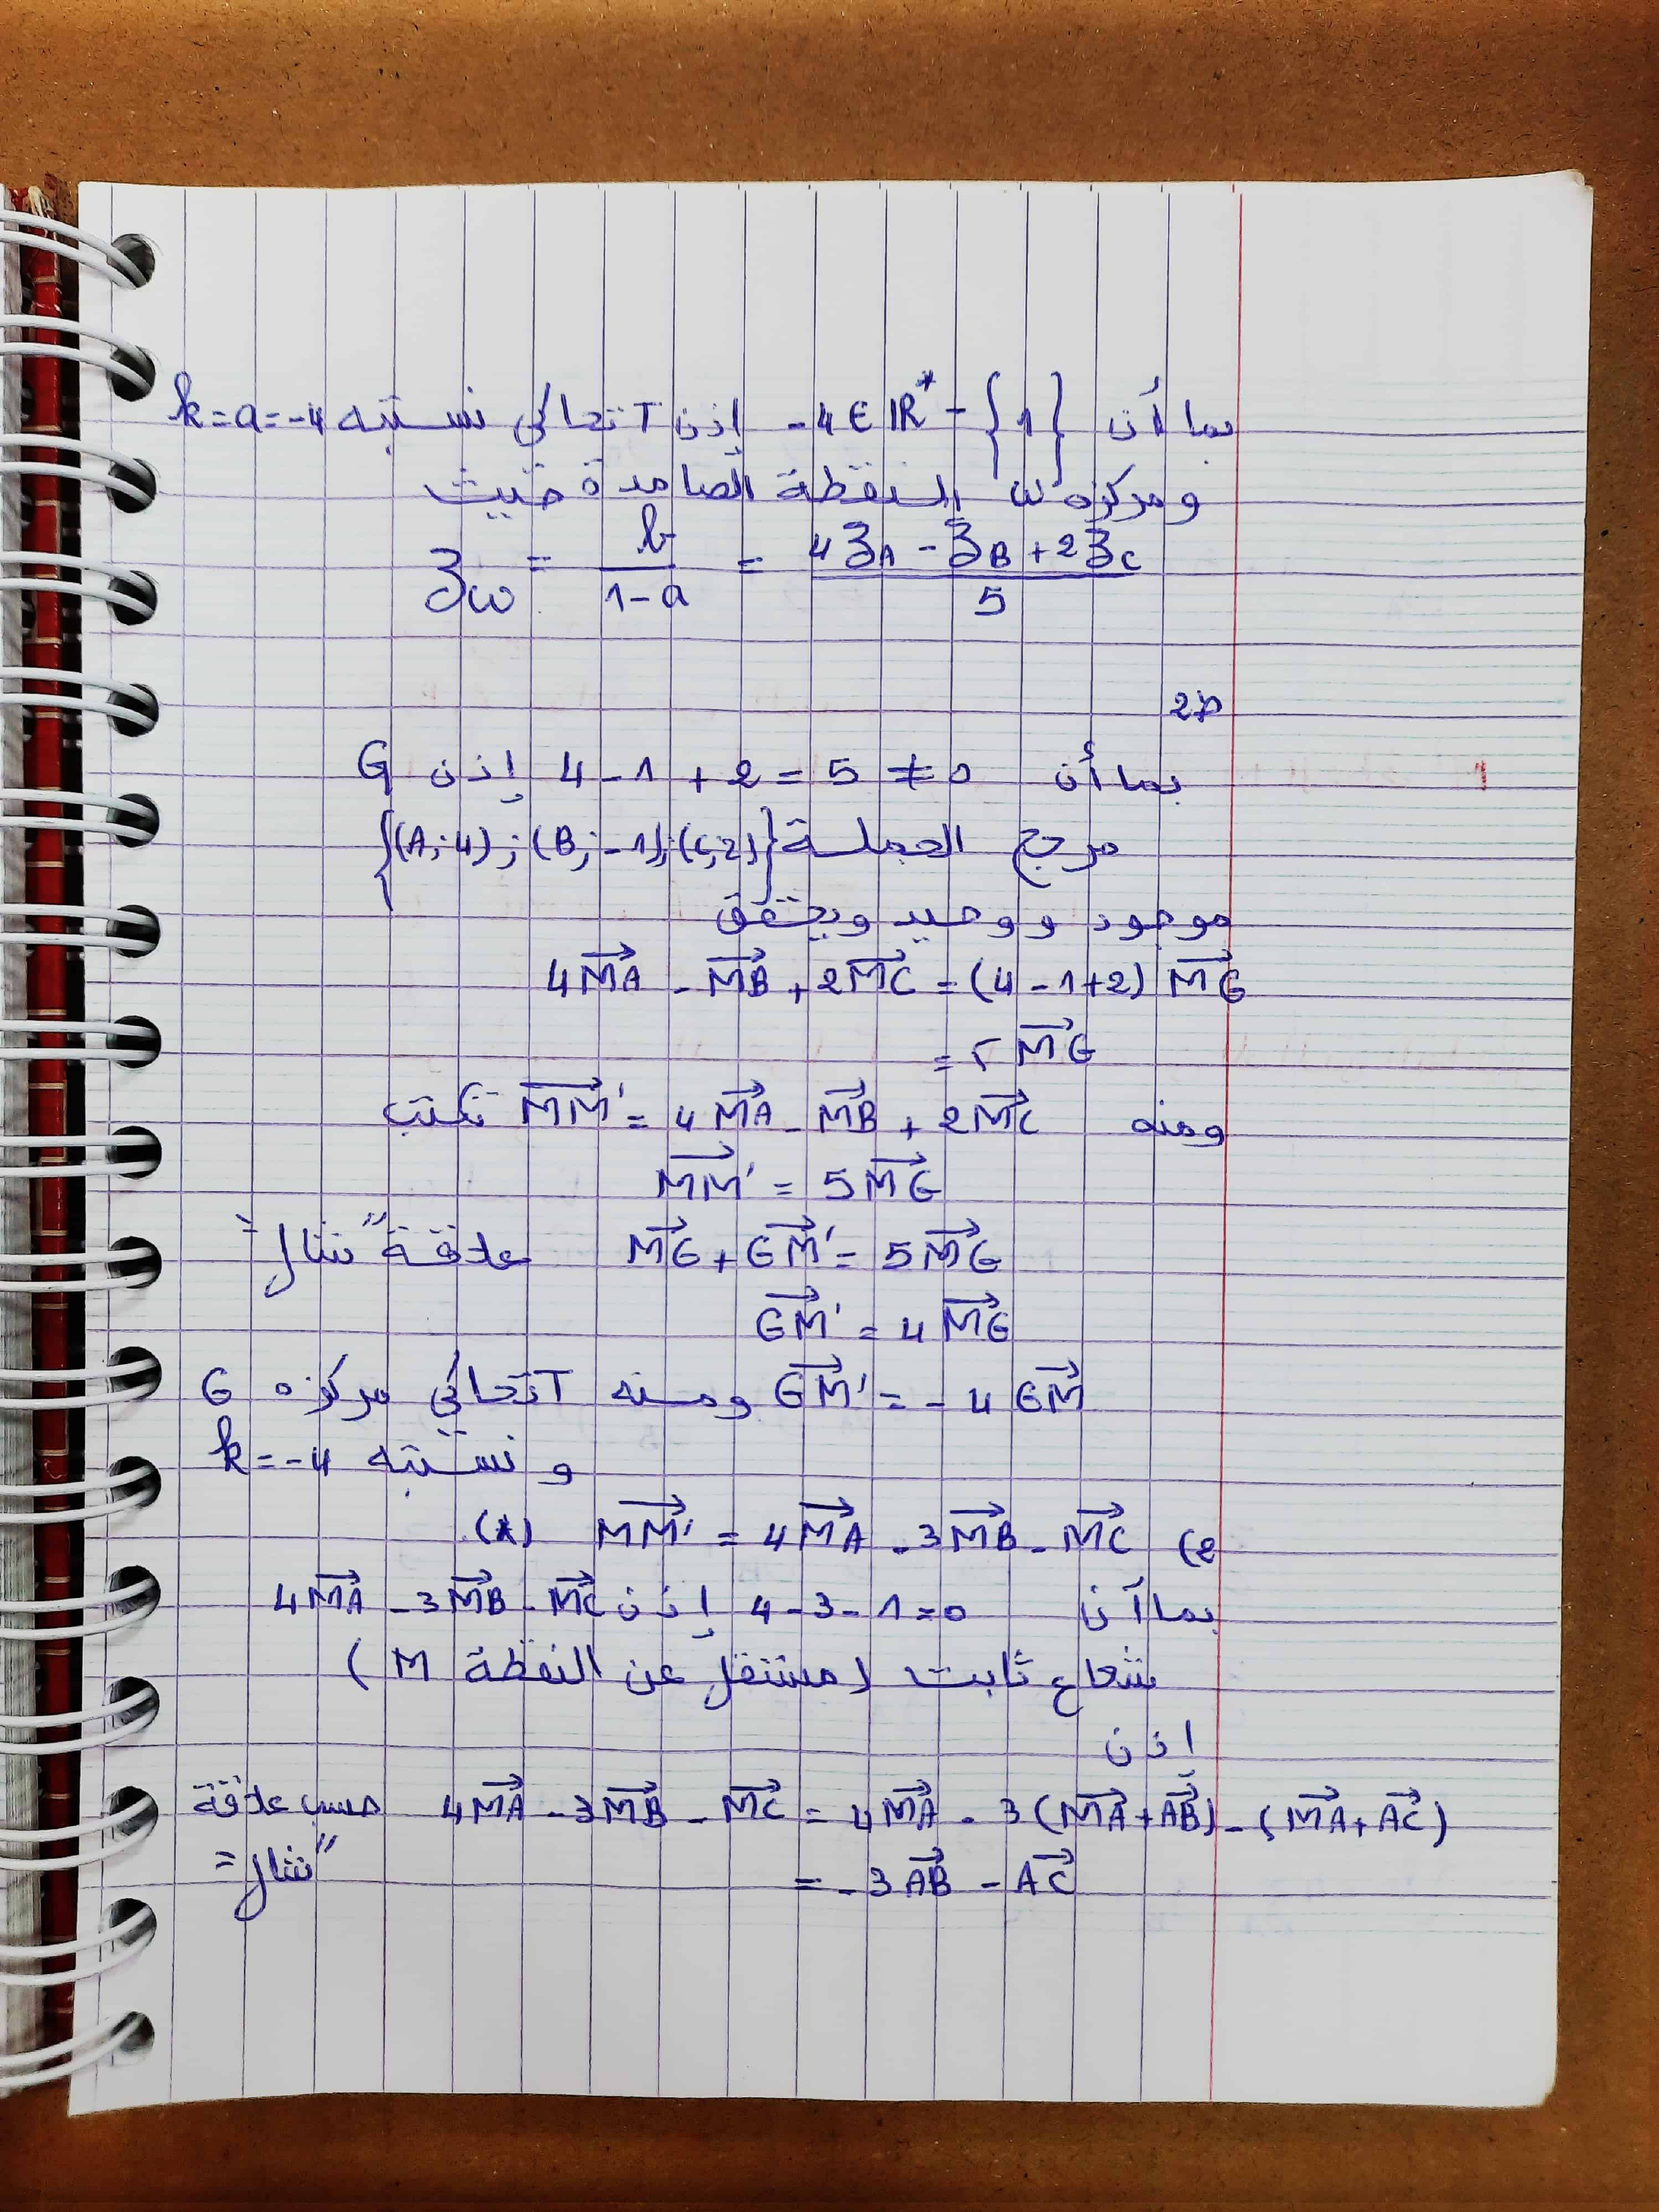 بما أن -4 ∈ ℝ* - {1} إذن T تحاكي نسبته k = a = -4
ومركزه ω النقطة الصامدة حيث
z_ω = b/(1-a) = (4z_A - z_B + 2z_C)/5
ط2
بما أن 4 - 1 + 2 = 5 ≠ 0 إذن G
مرجح الجملة {(A;4);(B;-1);(C;2)}
موجود ووحيد ويحقق
4MA⃗ - MB⃗ + 2MC⃗ = (4 - 1 + 2) MG⃗
= 5 MG⃗
ومنه MM'⃗ = 4MA⃗ - MB⃗ + 2MC⃗ تكتب
MM'⃗ = 5MG⃗
MG⃗ + GM'⃗ = 5MG⃗ علاقة "شال"
GM'⃗ = 4MG⃗
GM'⃗ = -4GM⃗ ومنه T تحاكي مركزه G
ونسبته k = -4
2) MM'⃗ = 4MA⃗ - 3MB⃗ - MC⃗ (*)
بما أن 4 - 3 - 1 = 0 إذن 4MA⃗ - 3MB⃗ - MC⃗
شعاع ثابت (مستقل عن النقطة M)
إذن
4MA⃗ - 3MB⃗ - MC⃗ = 4MA⃗ - 3(MA⃗ + AB⃗) - (MA⃗ + AC⃗) حسب علاقة
= -3AB⃗ - AC⃗ "شال"